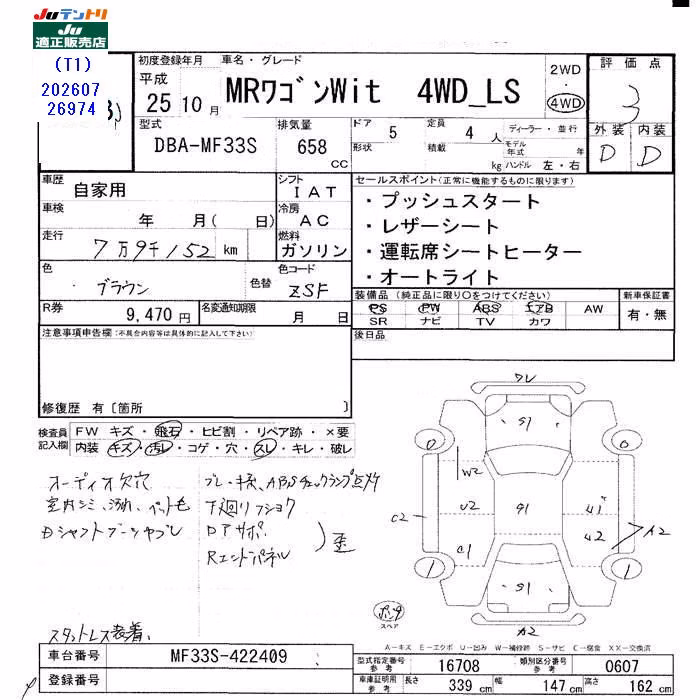 JUテントリ
JU
適正販売店
(T1)
202607
26974
初度登録年月
平成
25 10 月
車名・グレード
MRワゴンWit 4WD_LS
2WD
・
4WD
評価点
3
外装 内装
D D
型式
DBA-MF33S
排気量
658 CC
ドア 5
形状
定員 4 人
積載 kg
ディーラー・並行
モデル年式 年
ハンドル 左・右
車歴 自家用
シフト IAT
車検 年 月( 日)
冷房 AC
走行 7万9千152 km
燃料 ガソリン
色 ブラウン
色替
色コード ZSF
R券 9,470 円
名変通知期限 月 日
セールスポイント(正常に機能するものに限ります)
・プッシュスタート
・レザーシート
・運転席シートヒーター
・オートライト
装備品(純正品に限り○をつけてください)
PS PW ABS エアB AW
SR ナビ TV カワ
新車保証書
有・無
後日品
注意事項申告欄(不具合内容等は具体的に記入して下さい)
修復歴 有〔箇所 〕
検査員記入欄
FW キズ・飛石・ヒビ割・リペア跡・×要
内装 キズ・汚レ・コゲ・穴・スレ・キレ・破レ
オーディオ欠穴
室内シミ、汚れ、ペット毛
Dシャフトブーツヤブレ
ブレーキ系、ABSチェックランプ点灯
下廻りフショク
Dアサポ
Rエンドパネル
歪
スタットレス装着、
ワレ
S1
0 0
W2
U2
C2
C1
G1
U1
U2
A2
1 1
S1
A2
パンク
スペア
A-キズ E-エクボ U-凹み W-補修跡 S-サビ C-腐食 XX-交換済
車台番号 MF33S-422409
登録番号
型式指定番号参考 16708
類別区分番号参考 0607
車庫証明用参考 長さ 339 cm 幅 147 cm 高さ 162 cm